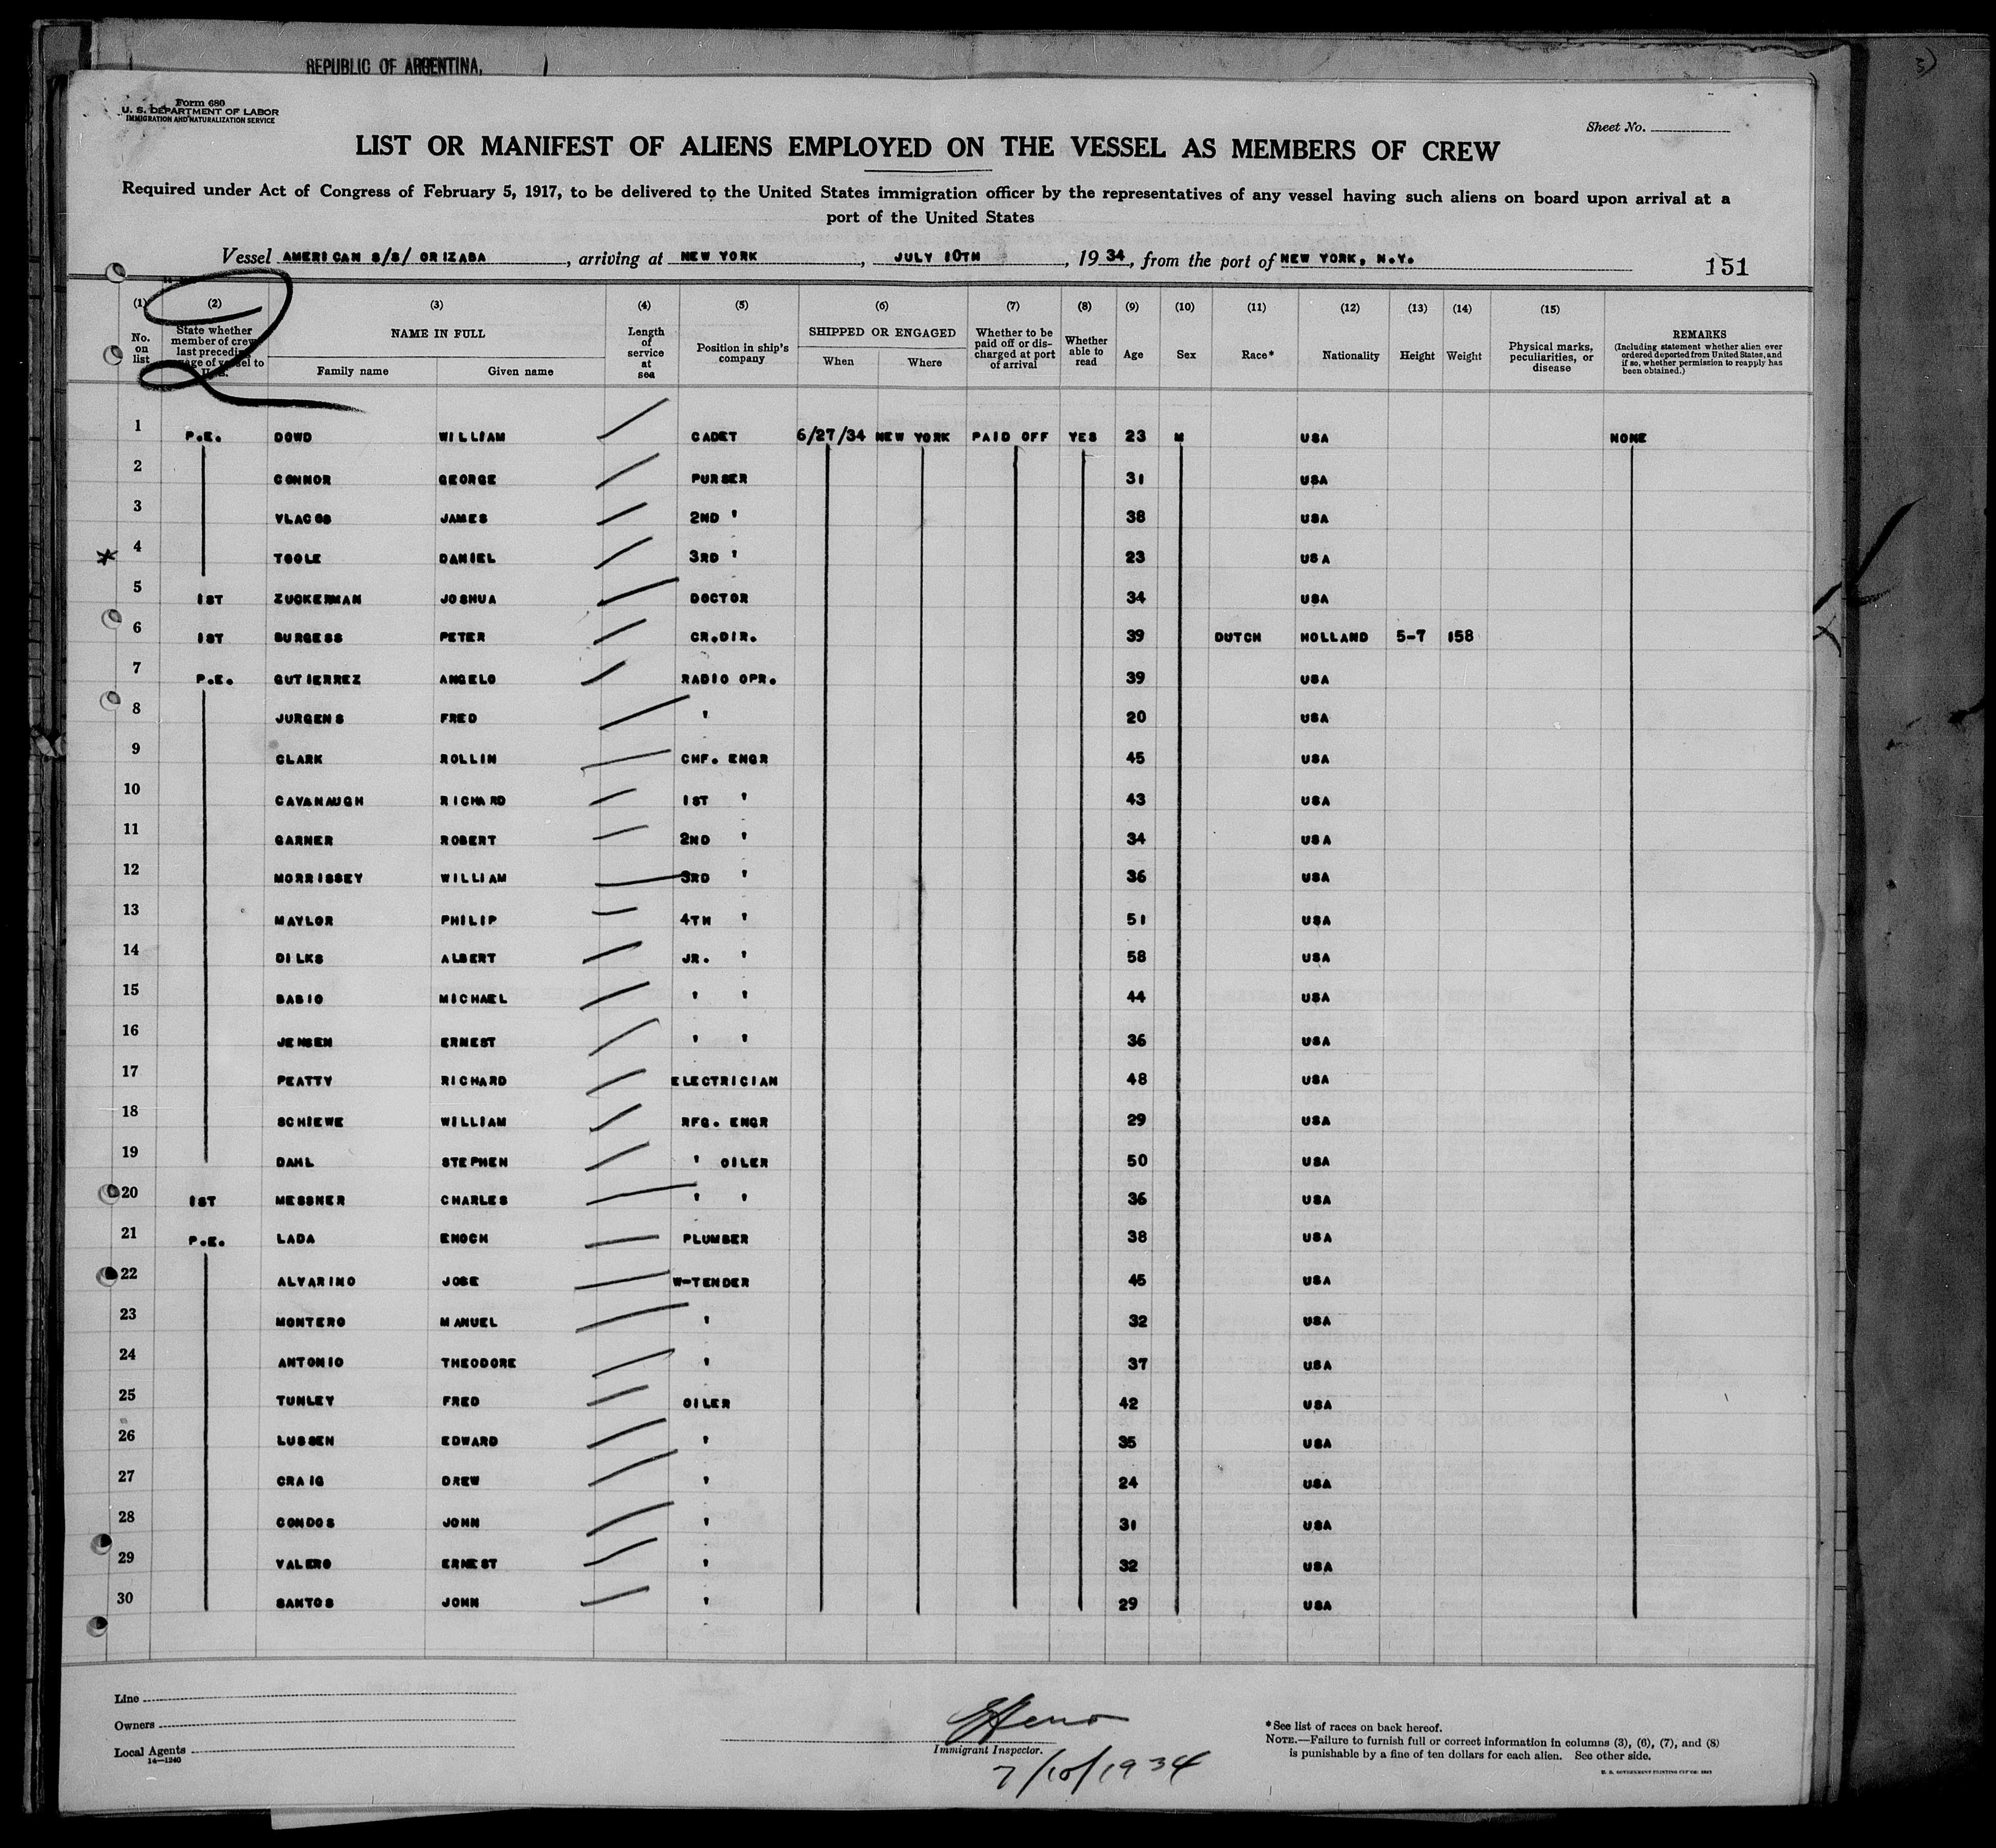 REPUBLIC OF ARGENTINA,
Form 680
U. S. DEPARTMENT OF LABOR
IMMIGRATION AND NATURALIZATION SERVICE
Sheet No.
LIST OR MANIFEST OF ALIENS EMPLOYED ON THE VESSEL AS MEMBERS OF CREW
Required under Act of Congress of February 5, 1917, to be delivered to the United States immigration officer by the representatives of any vessel having such aliens on board upon arrival at a
port of the United States
Vessel AMERICAN S/S/ ORIZABA, arriving at NEW YORK, JULY 10TH, 1934, from the port of NEW YORK, N.Y.
151
2
(1) (2) (3) (4) (5) (6) (7) (8) (9) (10) (11) (12) (13) (14) (15)
No. on list
State whether member of crew last preceding voyage of vessel to U.S.
NAME IN FULL
Family name Given name
Length of service at sea
Position in ship's company
SHIPPED OR ENGAGED
When Where
Whether to be paid off or discharged at port of arrival
Whether able to read
Age
Sex
Race*
Nationality
Height
Weight
Physical marks, peculiarities, or disease
REMARKS
(Including statement whether alien ever ordered deported from United States, and if so, whether permission to reapply has been obtained.)
1 P.E. DOWD WILLIAM CADET 6/27/34 NEW YORK PAID OFF YES 23 M USA NONE
2 CONNOR GEORGE PURSER 31 USA
3 VLACOS JAMES 2ND ' 38 USA
4 TOOLE DANIEL 3RD ' 23 USA
5 1ST ZUCKERMAN JOSHUA DOCTOR 34 USA
6 1ST BURGESS PETER CR.DIR. 39 DUTCH HOLLAND 5-7 158
7 P.E. GUTIERREZ ANGELO RADIO OPR. 39 USA
8 JURGENS FRED ' 20 USA
9 CLARK ROLLIN CHF. ENGR 45 USA
10 CAVANAUGH RICHARD 1ST ' 43 USA
11 GARNER ROBERT 2ND ' 34 USA
12 MORRISSEY WILLIAM 3RD ' 36 USA
13 MAYLOR PHILIP 4TH ' 51 USA
14 DILKS ALBERT JR. ' 58 USA
15 BABIO MICHAEL ' ' 44 USA
16 JENSEN ERNEST ' ' 36 USA
17 PEATTY RICHARD ELECTRICIAN 48 USA
18 SCHIEWE WILLIAM RFG. ENGR 29 USA
19 DAHL STEPHEN ' OILER 50 USA
20 1ST MESSNER CHARLES ' ' 36 USA
21 P.E. LADA ENOCH PLUMBER 38 USA
22 ALVARINO JOSE W-TENDER 45 USA
23 MONTERO MANUEL ' 32 USA
24 ANTONIO THEODORE ' 37 USA
25 TUNLEY FRED OILER 42 USA
26 LUSSEN EDWARD ' 35 USA
27 CRAIG DREW ' 24 USA
28 CONDOS JOHN ' 31 USA
29 VALERO ERNEST ' 32 USA
30 SANTOS JOHN ' 29 USA
Line
Owners
Local Agents
14—1240
Immigrant Inspector.
7/10/1934
*See list of races on back hereof.
NOTE.—Failure to furnish full or correct information in columns (3), (6), (7), and (8)
is punishable by a fine of ten dollars for each alien. See other side.